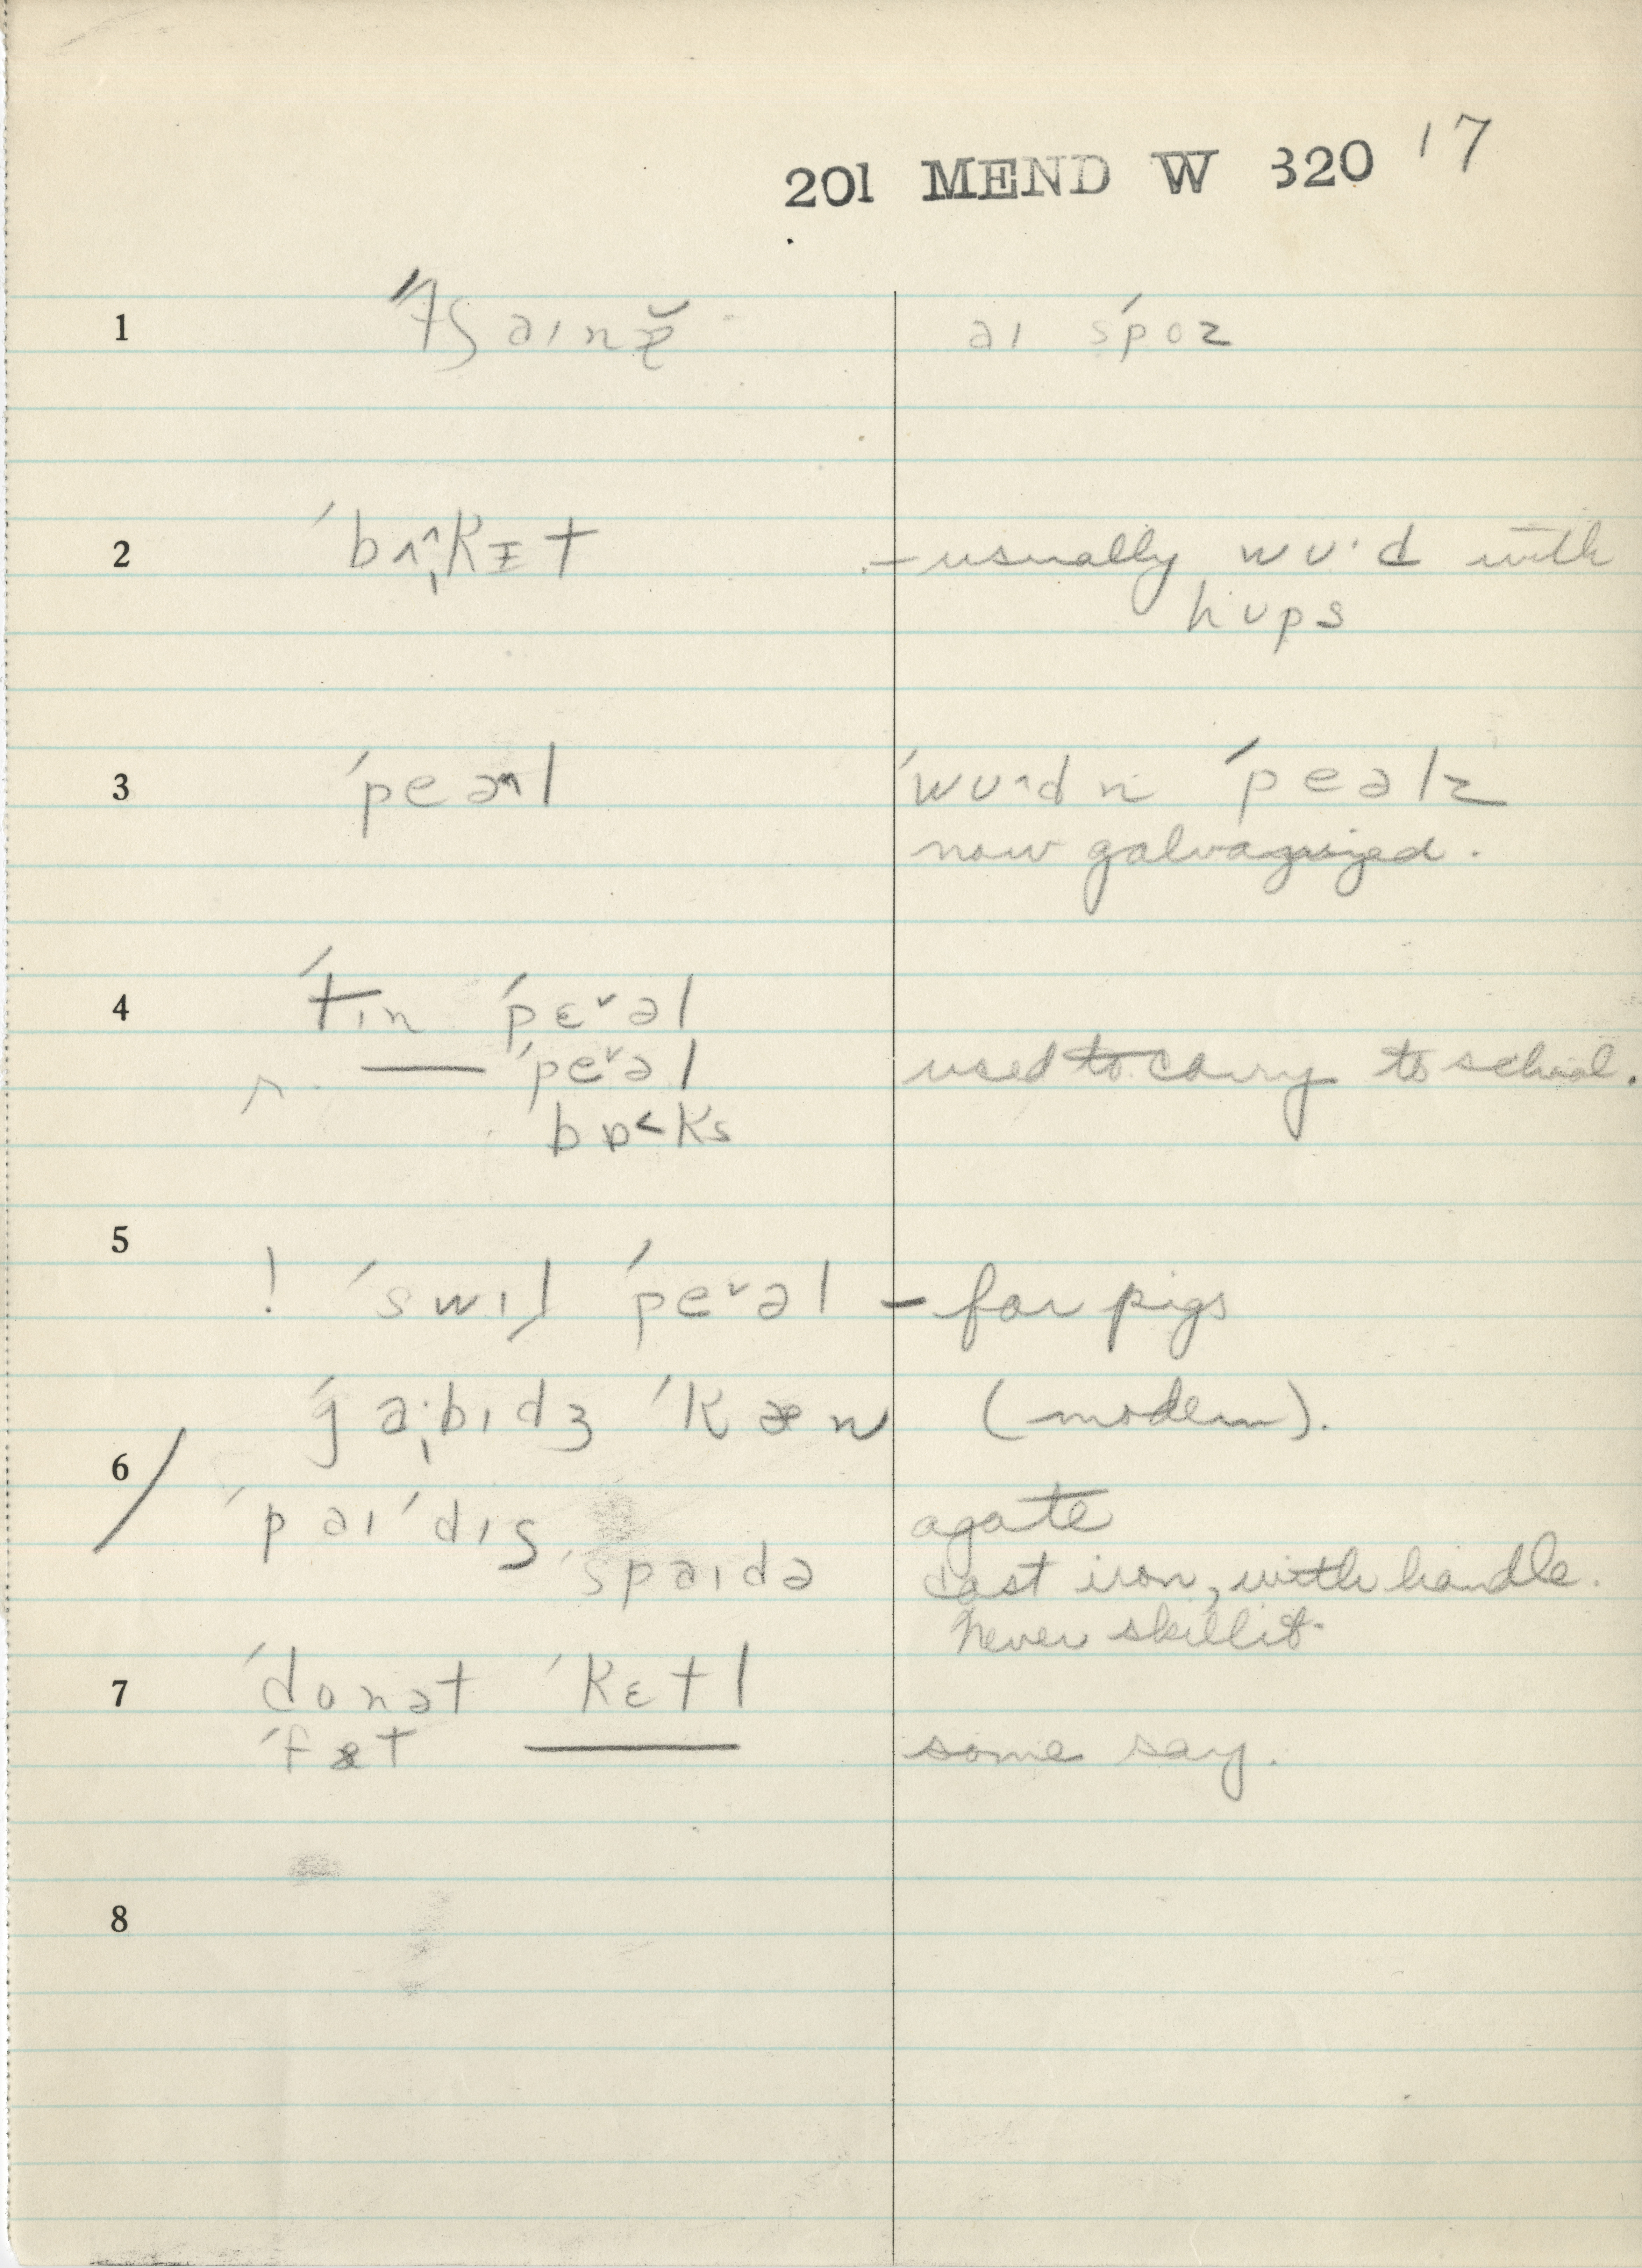 201 MEND W 320 17
1 ˈtʃaɪnə aɪ sˈpoz
2 ˈbʌkɪt – usually wʊ·d with
hups
3 ˈpeəl ˈwʊdn ˈpeəlz
now galvanized.
4 ˈtɪn ˈpɛ˅əl
— ˈpe˅əl used to carry to school.
bɒ˂ks
5
! ˈswɪl ˈpe˅əl – for pigs
ˈga·bɪdʒ ˈkæn (modern).
6
ˈpaɪ ˈdɪʃ agate
ˈspaɪdə cast iron, with handle.
Never skillit.
7 ˈdonət ˈkɛtl
ˈfæt — some say.
8